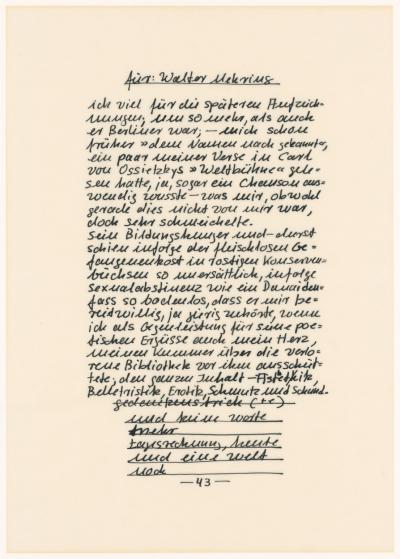 für: Walter Mehring
ich viel für die späteren Aufzeich-
nungen; um so mehr, als auch
er Berliner war; – mich schon
früher »dem Namen nach gekannt«,
ein paar meiner Verse in Carl
von Ossietzkys »Weltbühne« gele-
sen hatte, ja, sogar ein Chanson aus-
wendig wusste – was mir, obwohl
gerade dies nicht von mir war,
doch sehr schmeichelte.
Sein Bildungshunger und -durst
schien infolge der fleischlosen Ge-
fangenenkost in rostigen Konserven-
büchsen so unersättlich, infolge
Sexualabstinenz wie ein Danaiden-
fass so bodenlos, dass er mir be-
reitwillig, ja gierig zuhörte, wenn
ich als Gegenleistung für seine poe-
tischen Ergüsse auch mein Herz,
meinen Kummer über die verlo-
rene Bibliothek vor ihm ausschüt-
tete, den ganzen Inhalt – Ästhetik,
Belletristik, Erotik, Schmutz und Schund.
gedankenstrich (++)
und keine worte
mehr
tagsrechnung, heute
und eine welt
noch
– 43 –